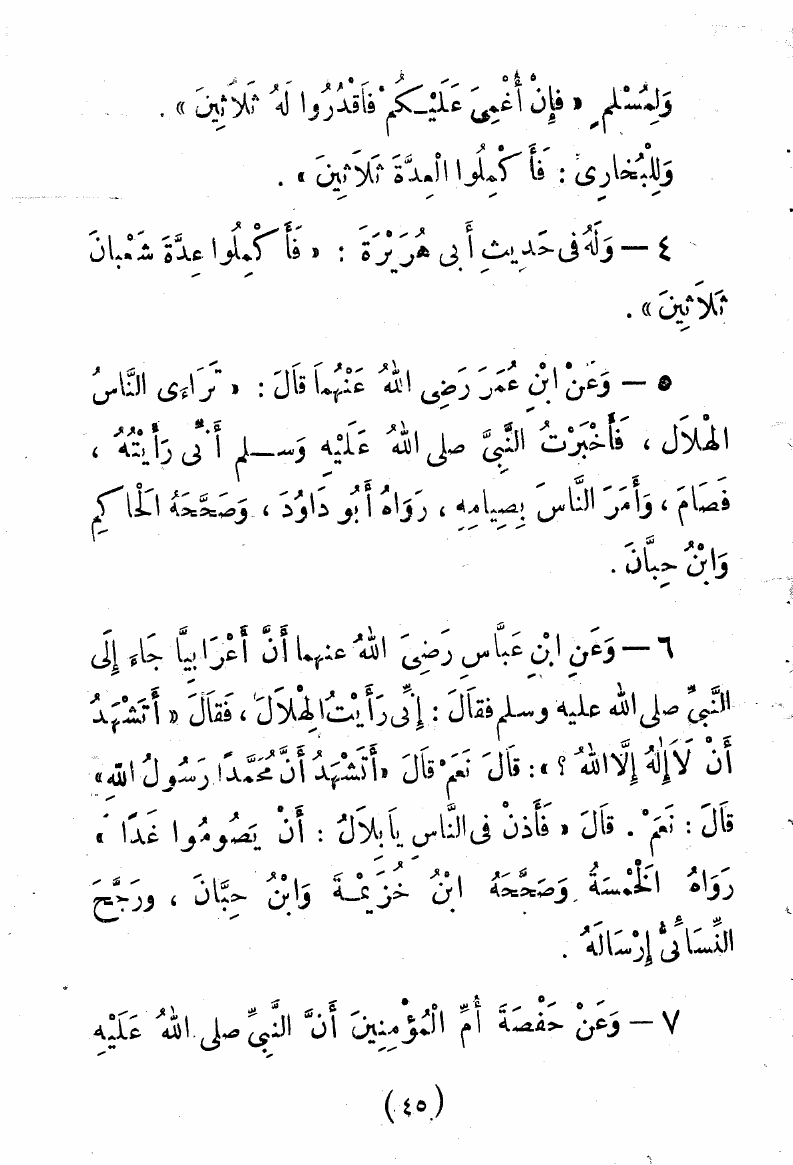 وَلِمُسْلِمٍ « فَإِنْ أُغْمِىَ عَلَيْكُمْ فَاقْدُرُوا لَهُ ثَلَاثِينَ » .
وَلِلْبُخَارِىِّ : فَأَكْمِلُوا الْعِدَّةَ ثَلَاثِينَ » .
٤ — وَلَهُ فِى حَدِيثِ أَبِى هُرَيْرَةَ : « فَأَكْمِلُوا عِدَّةَ شَعْبَانَ
ثَلَاثِينَ » .
٥ — وَعَنْ ابْنِ عُمَرَ رَضِى اللهُ عَنْهُمَا قَالَ : « تَرَاءَى النَّاسُ
الْهِلَالَ ، فَأَخْبَرْتُ النَّبِىَّ صلى اللهُ عَلَيْهِ وَسلم أَنِّى رَأَيْتُهُ ،
فَصَامَ ، وَأَمَرَ النَّاسَ بِصِيَامِهِ ، رَوَاهُ أَبُو دَاوُدَ ، وَصَحَّحَهُ الْحَاكِمِ
وَابْنُ حِبَّانَ .
٦ — وَعَنِ ابْنِ عَبَّاسٍ رَضِىَ اللهُ عنهما أَنَّ أَعْرَابِيًّا جَاءَ إِلَى
النَّبِىِّ صلى الله عليه وسلم فقَالَ : إِنِّى رَأَيْتُ الْهِلَالَ ، فَقَالَ « أَتَشْهَدُ
أَنْ لَا إِلٰهَ إِلَّا اللهُ ؟ » : قَالَ نَعَمْ قَالَ «أَتَشْهَدُ أَنَّ مُحَمَّدًا رَسُولُ اللهِ»
قَالَ : نَعَمْ . قَالَ « فَأَذِنْ فِى النَّاسِ يَا بِلَالُ : أَنْ يَصُومُوا غَدًا »
رَوَاهُ الْخَمْسَةُ وَصَحَّحَهُ ابْنُ خُزَيْمَةَ وَابْنُ حِبَّانَ ، ورَجَّحَ
النَّسَائِىُّ إِرْسَالَهُ .
٧ — وَعَنْ حَفْصَةَ أُمِّ الْمُؤْمِنِينَ أَنَّ النَّبِىَّ صلى اللهُ عَلَيْهِ
( ٤٥ )